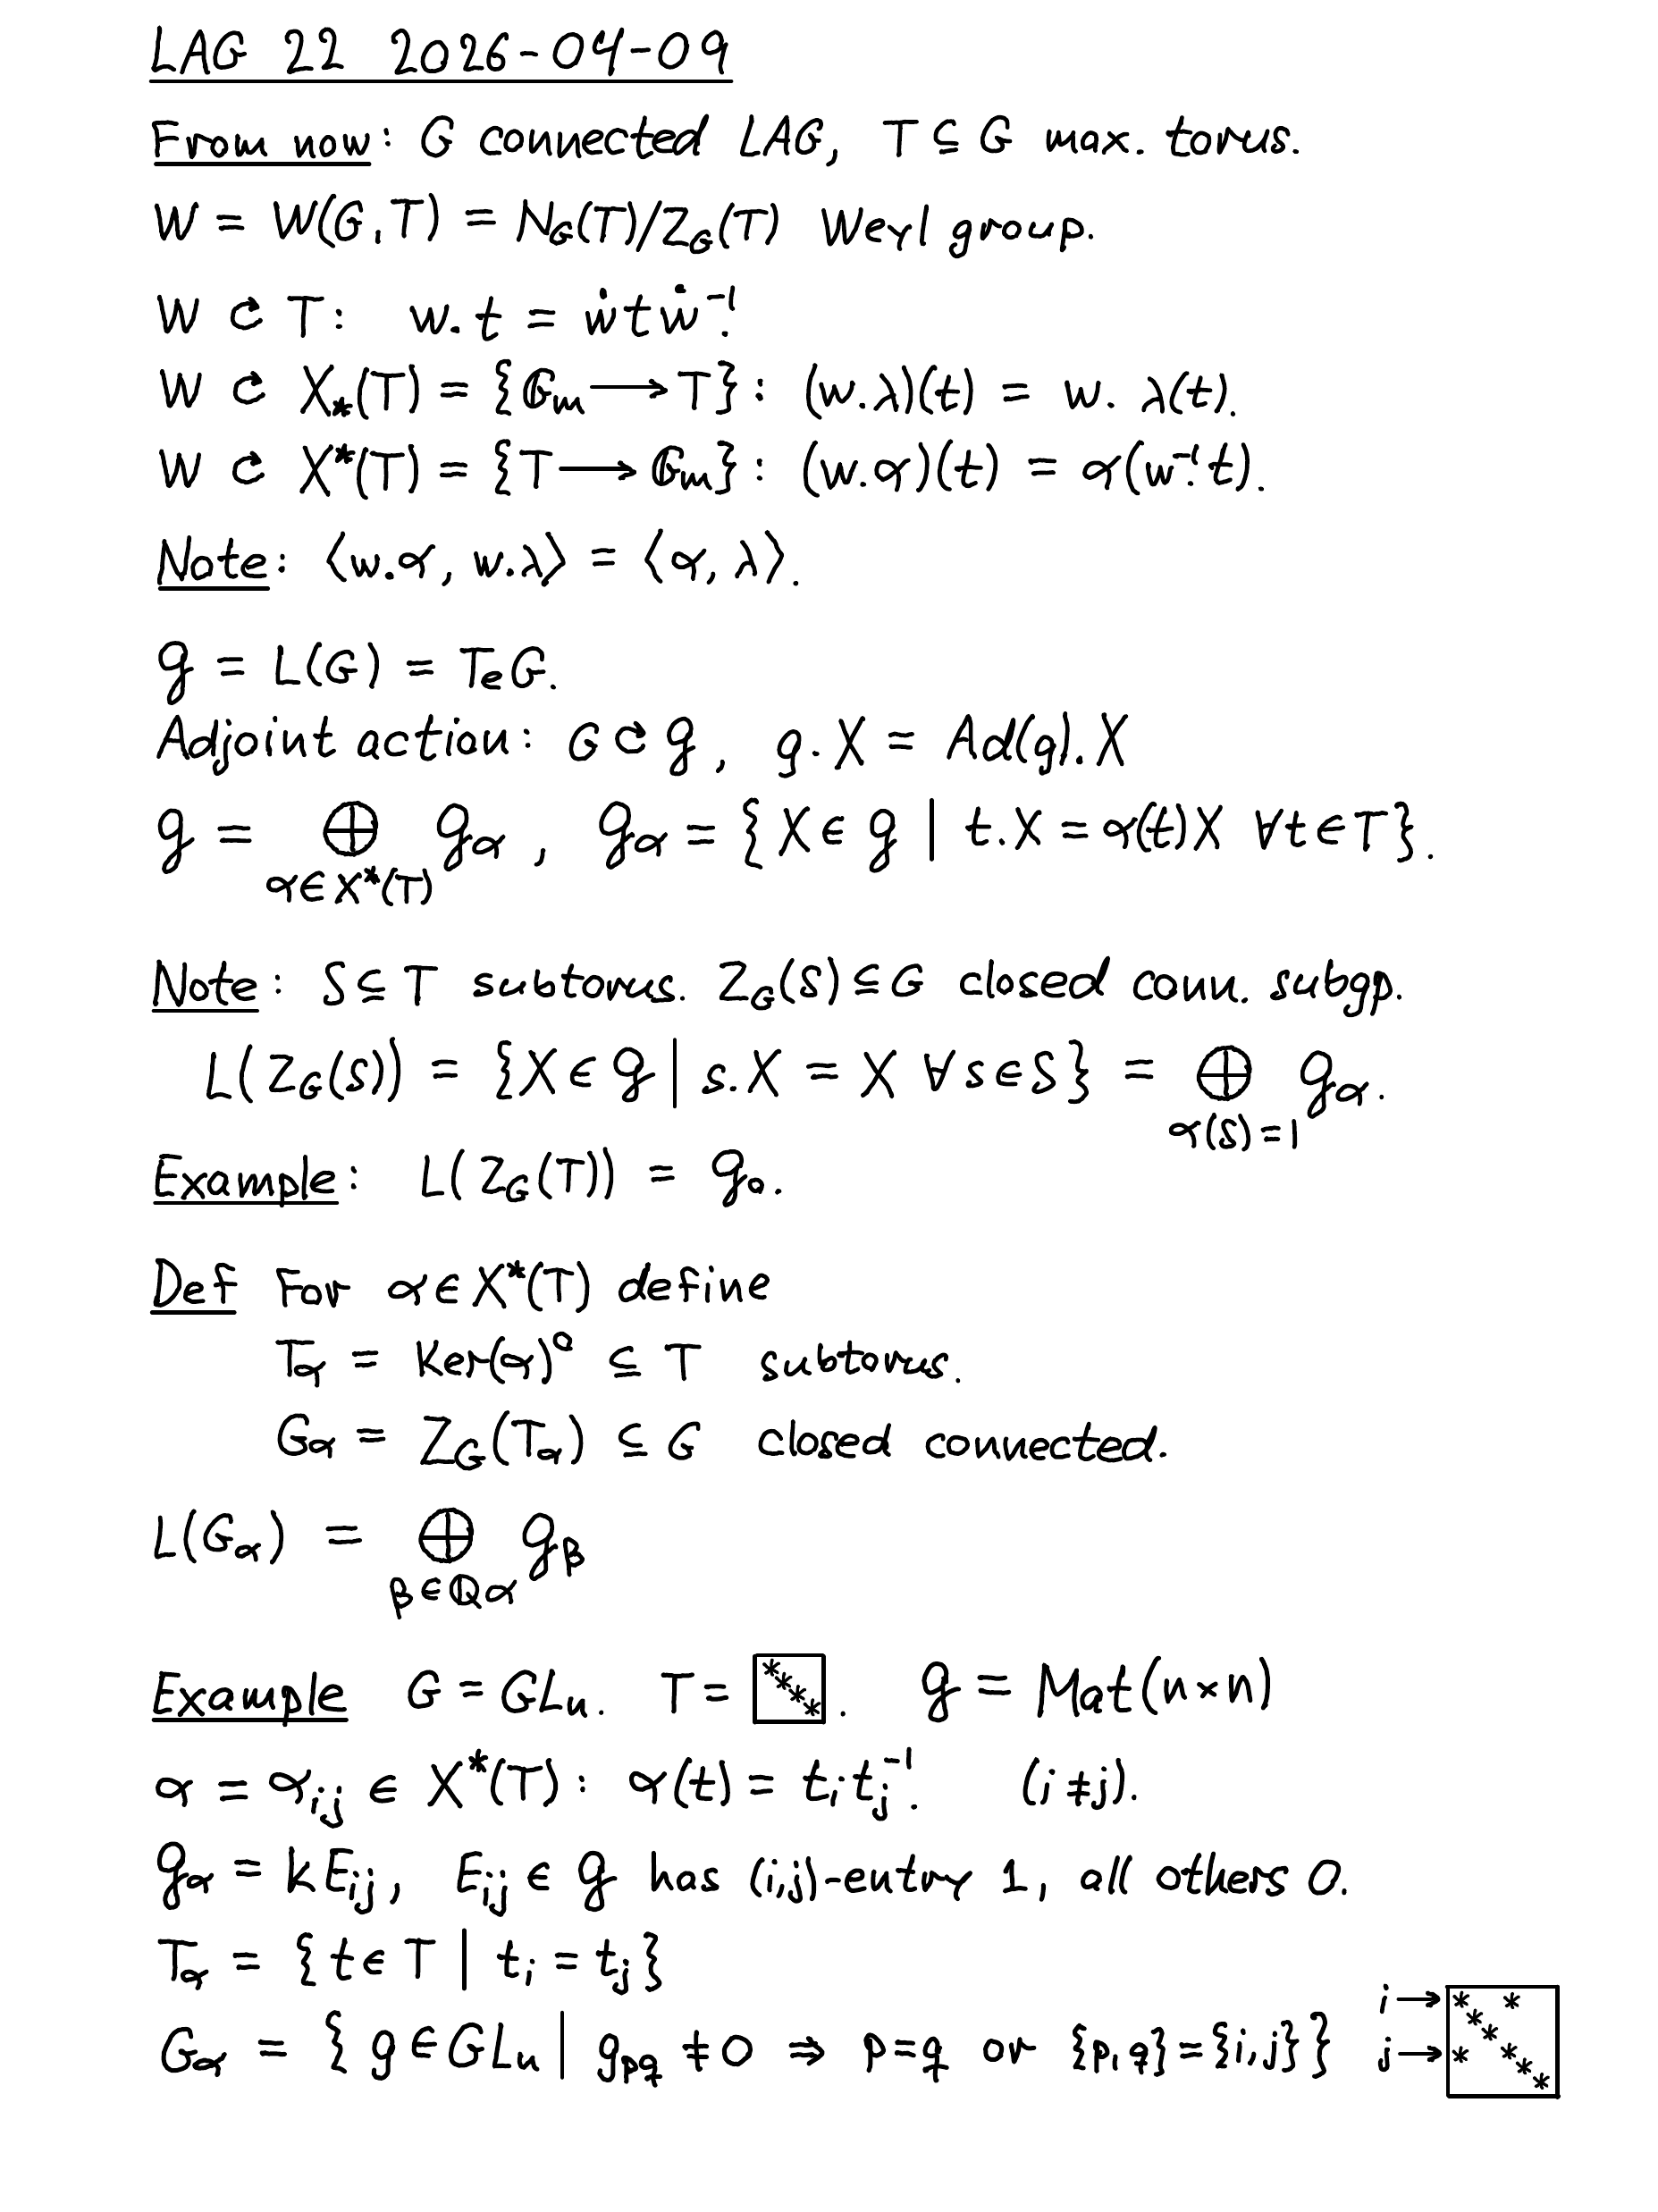 LAG 22 2026-04-09
From now: G connected LAG, T ⊆ G max. torus.
W = W(G,T) = N_G(T)/Z_G(T) Weyl group.
W ⟳ T: w.t = ẇtẇ⁻¹.
W ⟳ X_*(T) = {𝔾m ⟶ T}: (w.λ)(t) = w. λ(t).
W ⟳ X*(T) = {T ⟶ 𝔾m}: (w.α)(t) = α(w⁻¹.t).
Note: ⟨w.α, w.λ⟩ = ⟨α, λ⟩.
𝔤 = L(G) = TₑG.
Adjoint action: G ⟳ 𝔤, g.X = Ad(g).X
𝔤 = ⊕_{α∈X*(T)} 𝔤_α, 𝔤_α = {X ∈ 𝔤 | t.X = α(t)X ∀t∈T}.
Note: S ⊆ T subtorus. Z_G(S) ⊆ G closed conn. subgp.
L(Z_G(S)) = {X ∈ 𝔤 | s.X = X ∀s∈S} = ⊕_{α(S)=1} 𝔤_α.
Example: L(Z_G(T)) = 𝔤₀.
Def For α∈X*(T) define
T_α = Ker(α)⁰ ⊆ T subtorus.
G_α = Z_G(T_α) ⊆ G closed connected.
L(G_α) = ⊕_{β∈ℚα} 𝔤_β
Example G = GLn. T = [* * * *]. 𝔤 = Mat(n×n)
α = α_ij ∈ X*(T): α(t) = t_i t_j⁻¹. (i≠j).
𝔤_α = kE_ij, E_ij ∈ 𝔤 has (i,j)-entry 1, all others 0.
T_α = {t∈T | t_i = t_j}
G_α = {g∈GLn | g_pq ≠ 0 ⇒ p=q or {p,q}={i,j}} i→ * * * * j→ * * * *